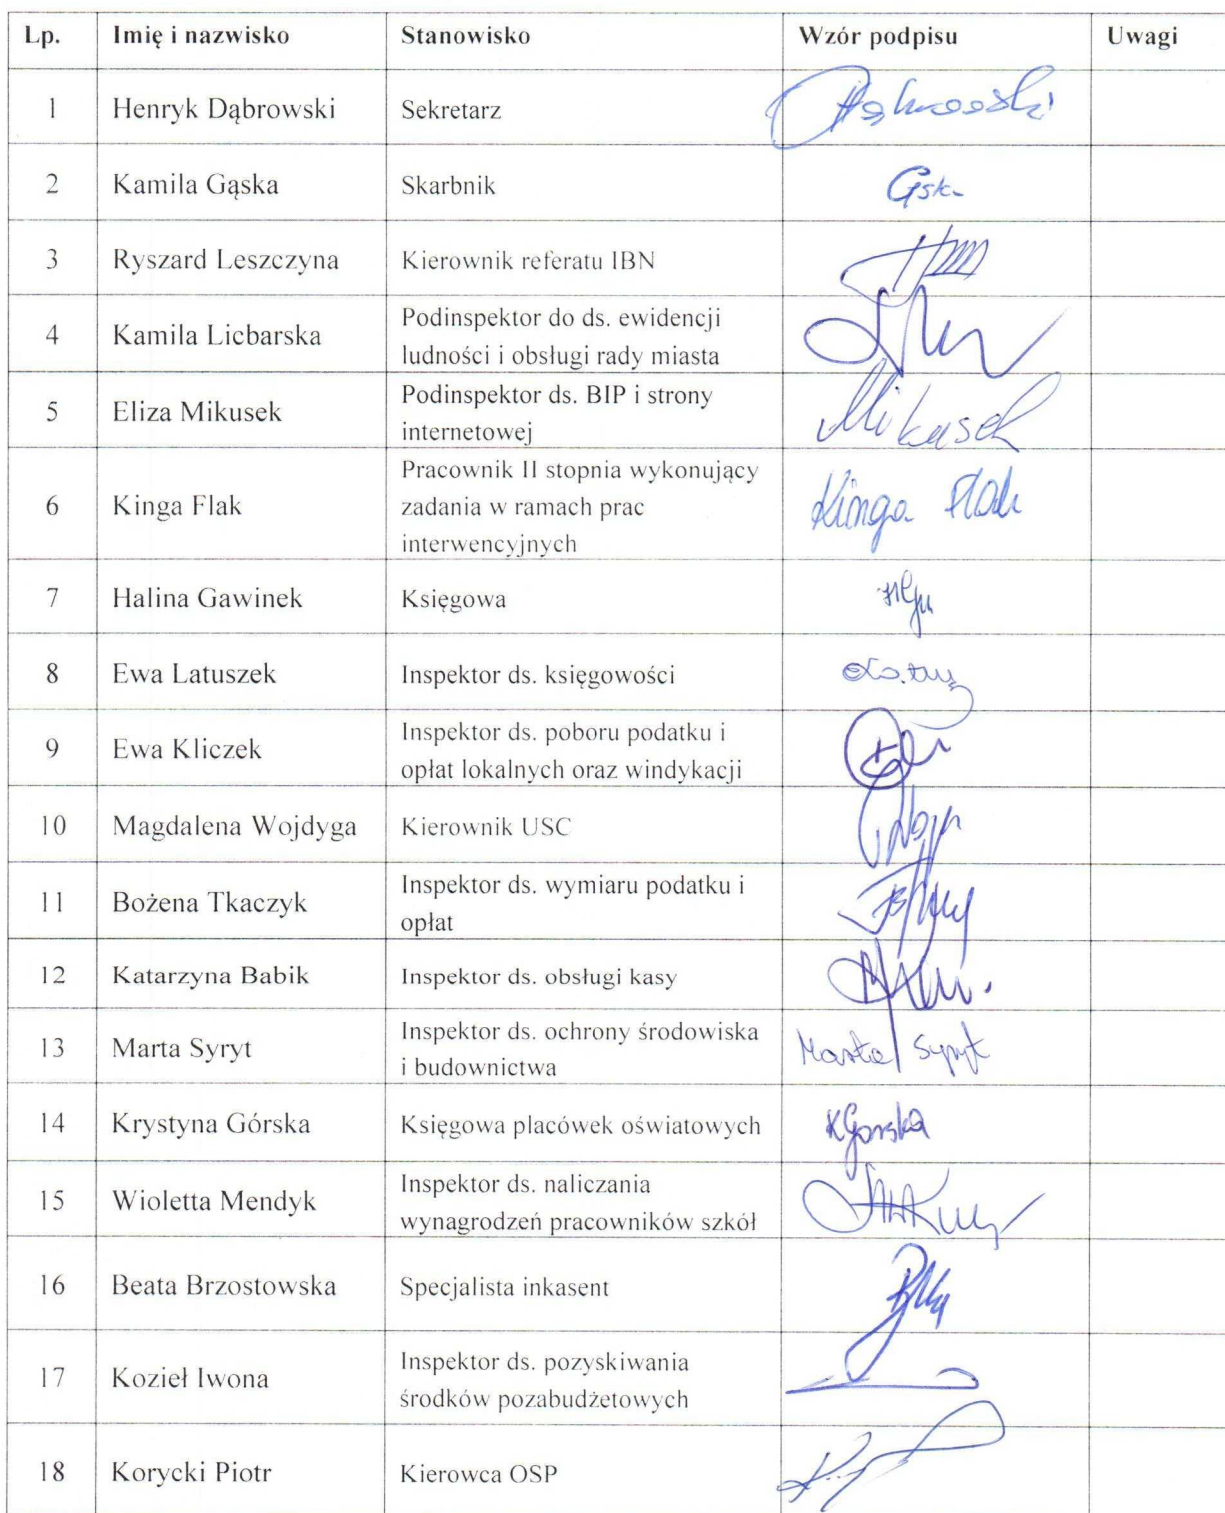 Lp. Imię i nazwisko Stanowisko Wzór podpisu Uwagi
1 Henryk Dąbrowski Sekretarz
2 Kamila Gąska Skarbnik
3 Ryszard Leszczyna Kierownik referatu IBN
4 Kamila Licbarska Podinspektor do ds. ewidencji
ludności i obsługi rady miasta
5 Eliza Mikusek Podinspektor ds. BIP i strony
internetowej
Mikusek
6 Kinga Flak Pracownik II stopnia wykonujący
zadania w ramach prac
interwencyjnych
Kinga Flak
7 Halina Gawinek Księgowa
8 Ewa Latuszek Inspektor ds. księgowości
9 Ewa Kliczek Inspektor ds. poboru podatku i
opłat lokalnych oraz windykacji
10 Magdalena Wojdyga Kierownik USC
11 Bożena Tkaczyk Inspektor ds. wymiaru podatku i
opłat
12 Katarzyna Babik Inspektor ds. obsługi kasy
13 Marta Syryt Inspektor ds. ochrony środowiska
i budownictwa
Marta Syryt
14 Krystyna Górska Księgowa placówek oświatowych KGorska
15 Wioletta Mendyk Inspektor ds. naliczania
wynagrodzeń pracowników szkół
16 Beata Brzostowska Specjalista inkasent
17 Kozieł Iwona Inspektor ds. pozyskiwania
środków pozabudżetowych
18 Korycki Piotr Kierowca OSP